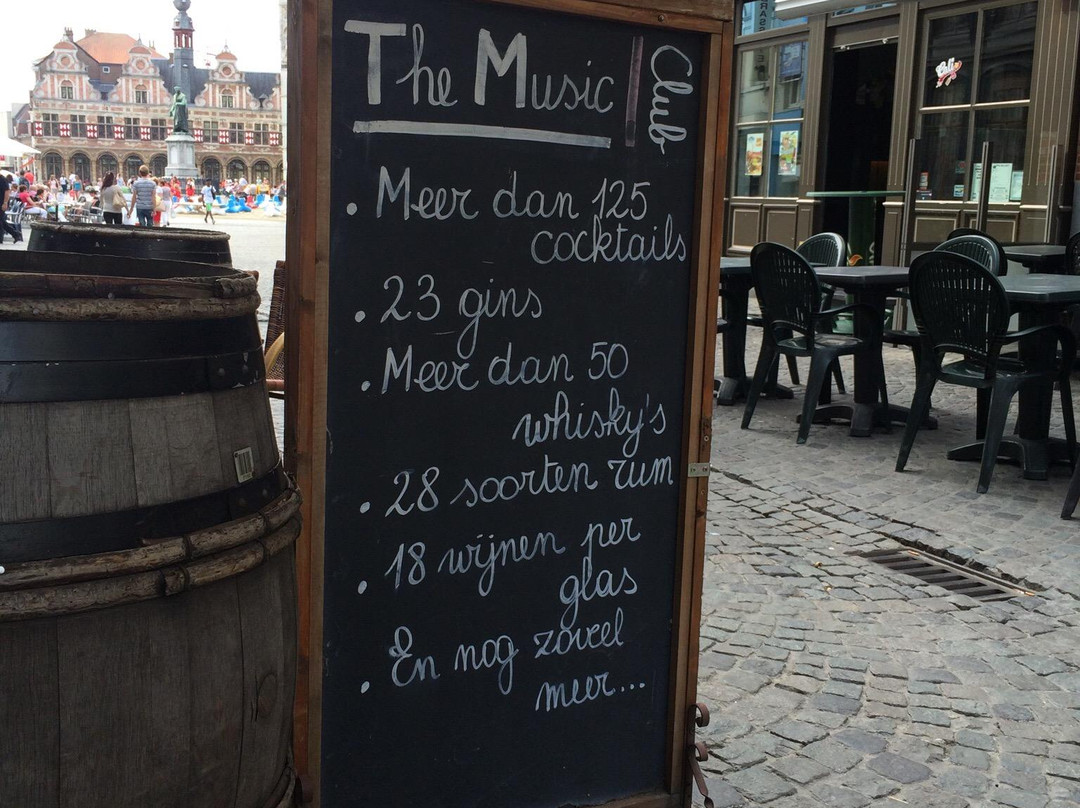 The Music Club
• Meer dan 125
cocktails
• 23 gins
• Meer dan 50
whisky's
• 28 soorten rum
• 18 wijnen per
glas
• En nog zoveel
meer...